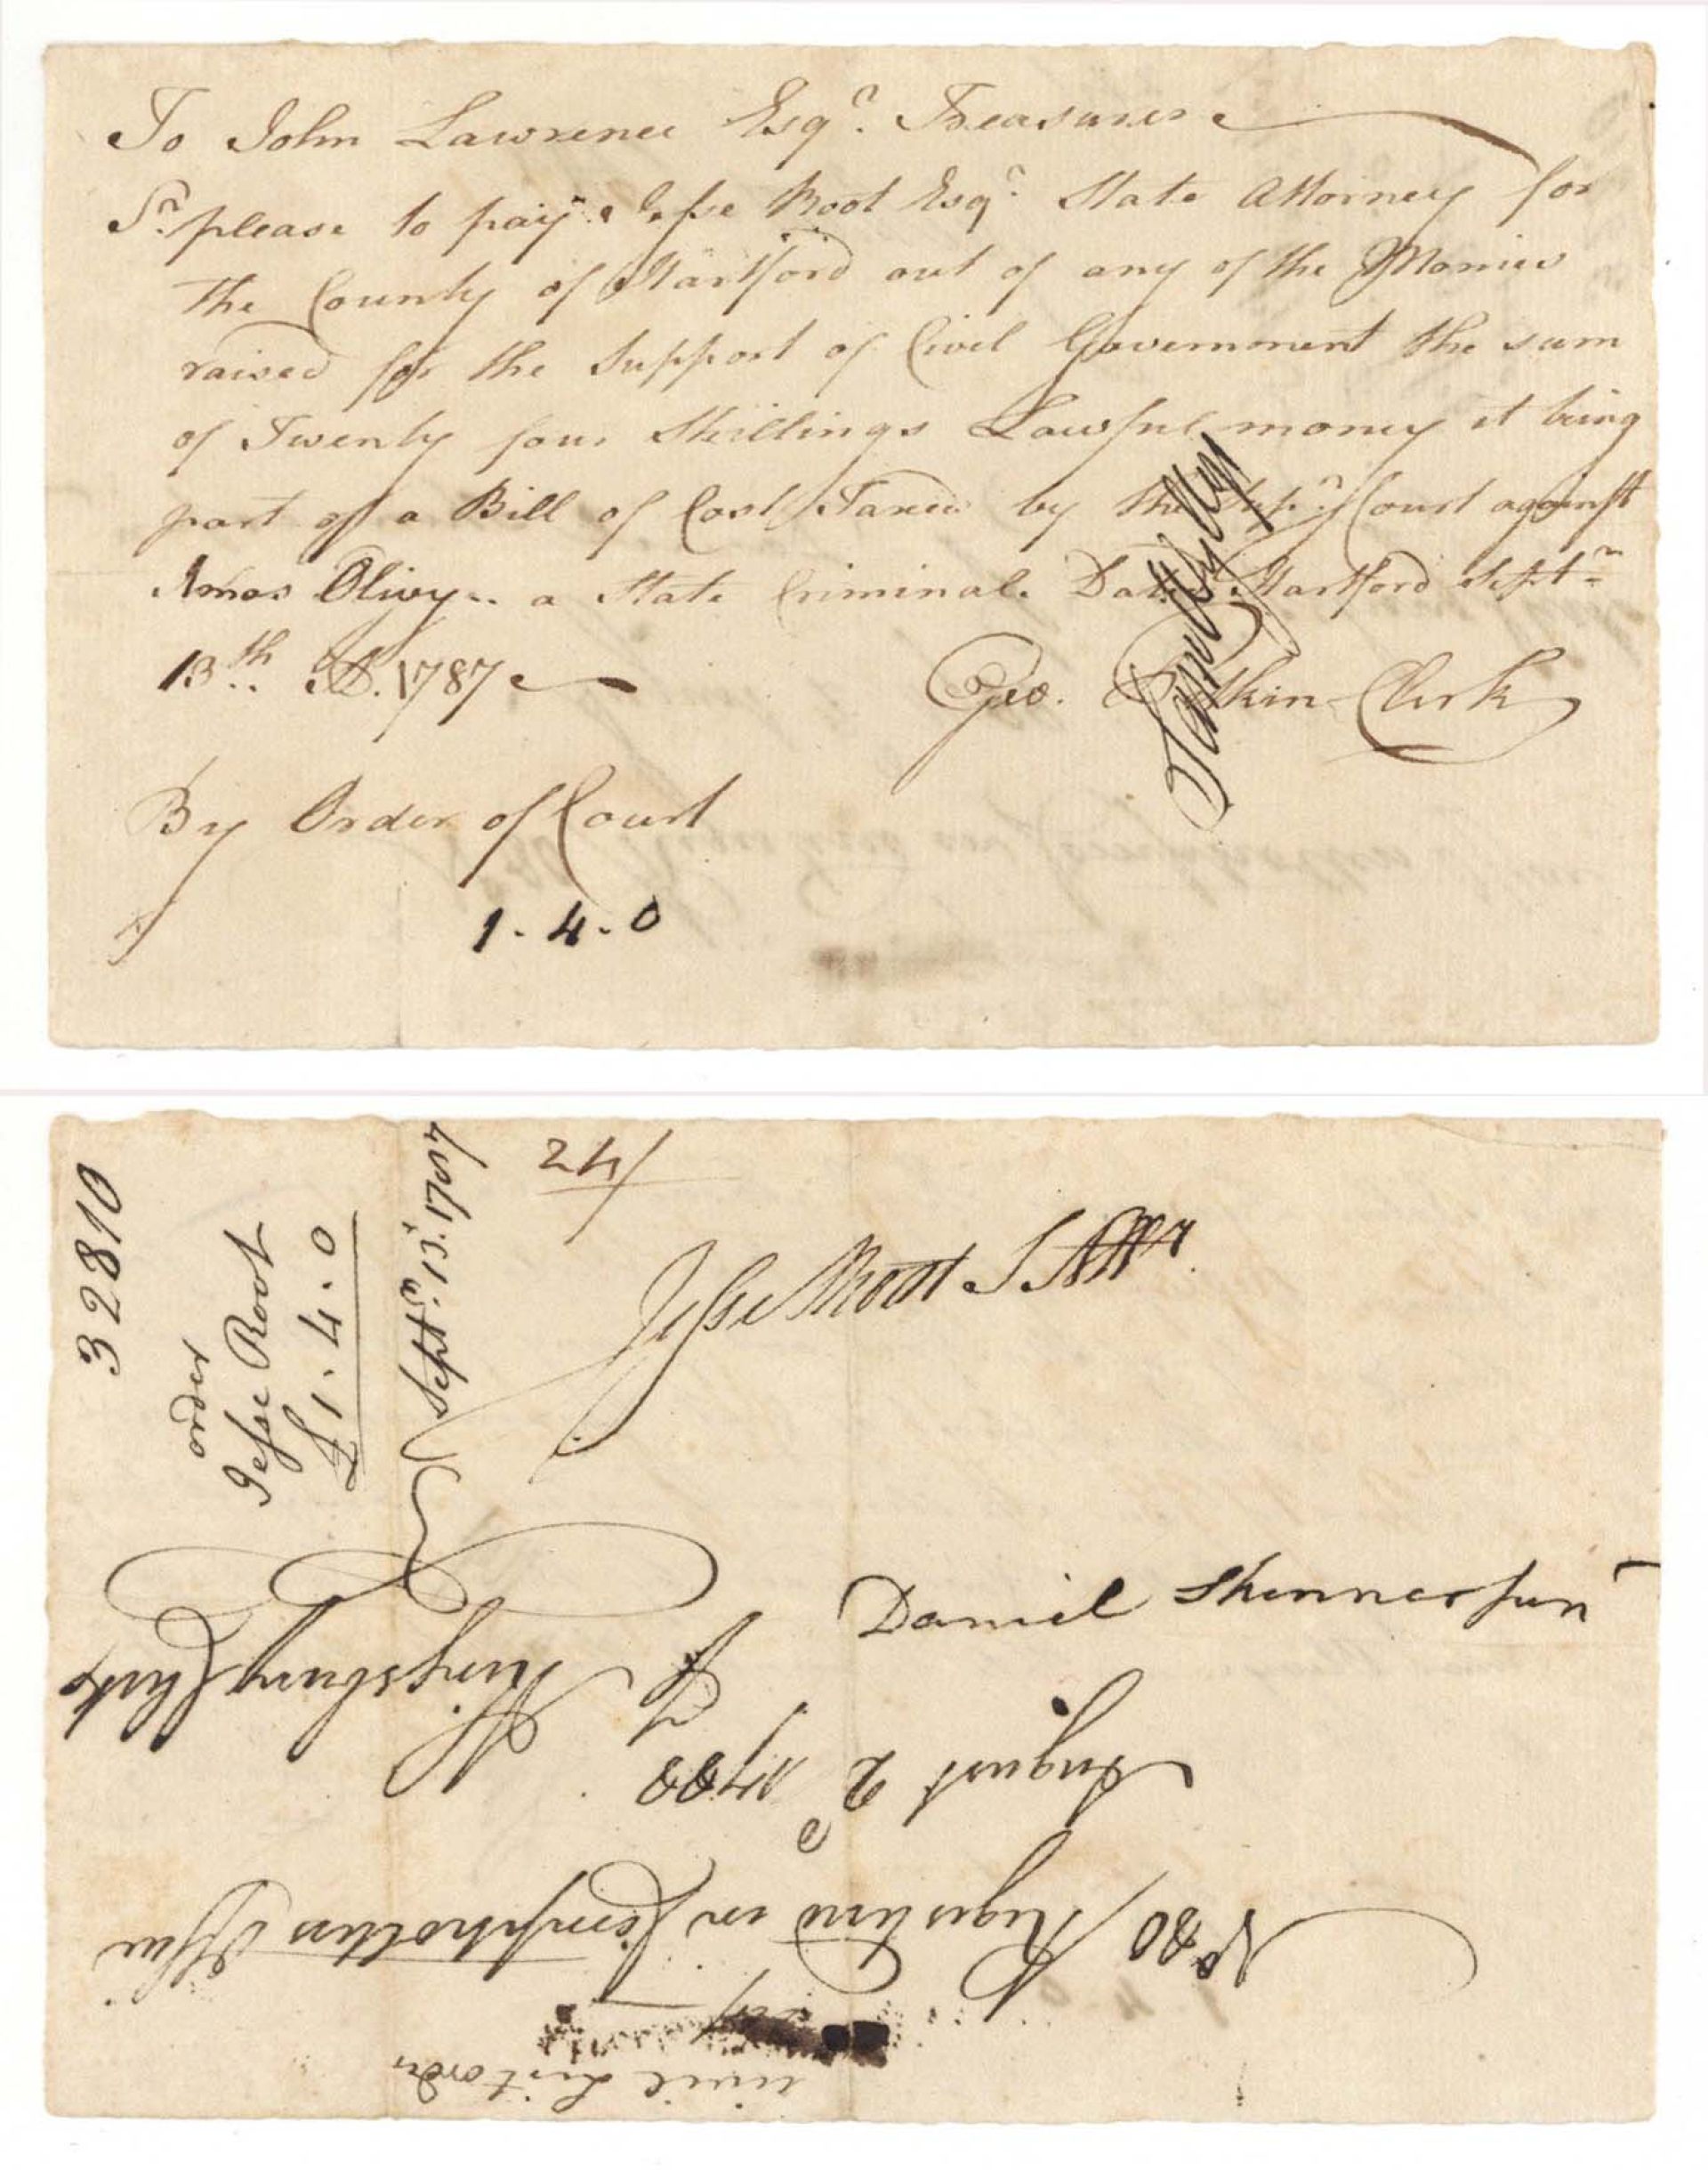 To John Lawrence Esqr. Treasurer
Sr. please to pay Jesse Root Esqr. State Attorney for
the County of Hartford out of any of the Monies
raised for the Support of Civil Government the sum
of Twenty four Shillings Lawful money it being
part of a Bill of Cost Taxed by the Supr. Court against
Amos Olivy a State Criminal. Dated Hartford Septr
13th. AD. 1787
Geo. Pitkin Clerk
By Order of Court
1. 4. 0
32810
order
Jesse Root
£1. 4. 0
Septr. 13. 1787
24/
Jesse Root S Attr.
Daniel Skinner Jun
civil List order
No 80 Registered in Comptrollers Office
August 2d 1788
A Kingsbury Clerk